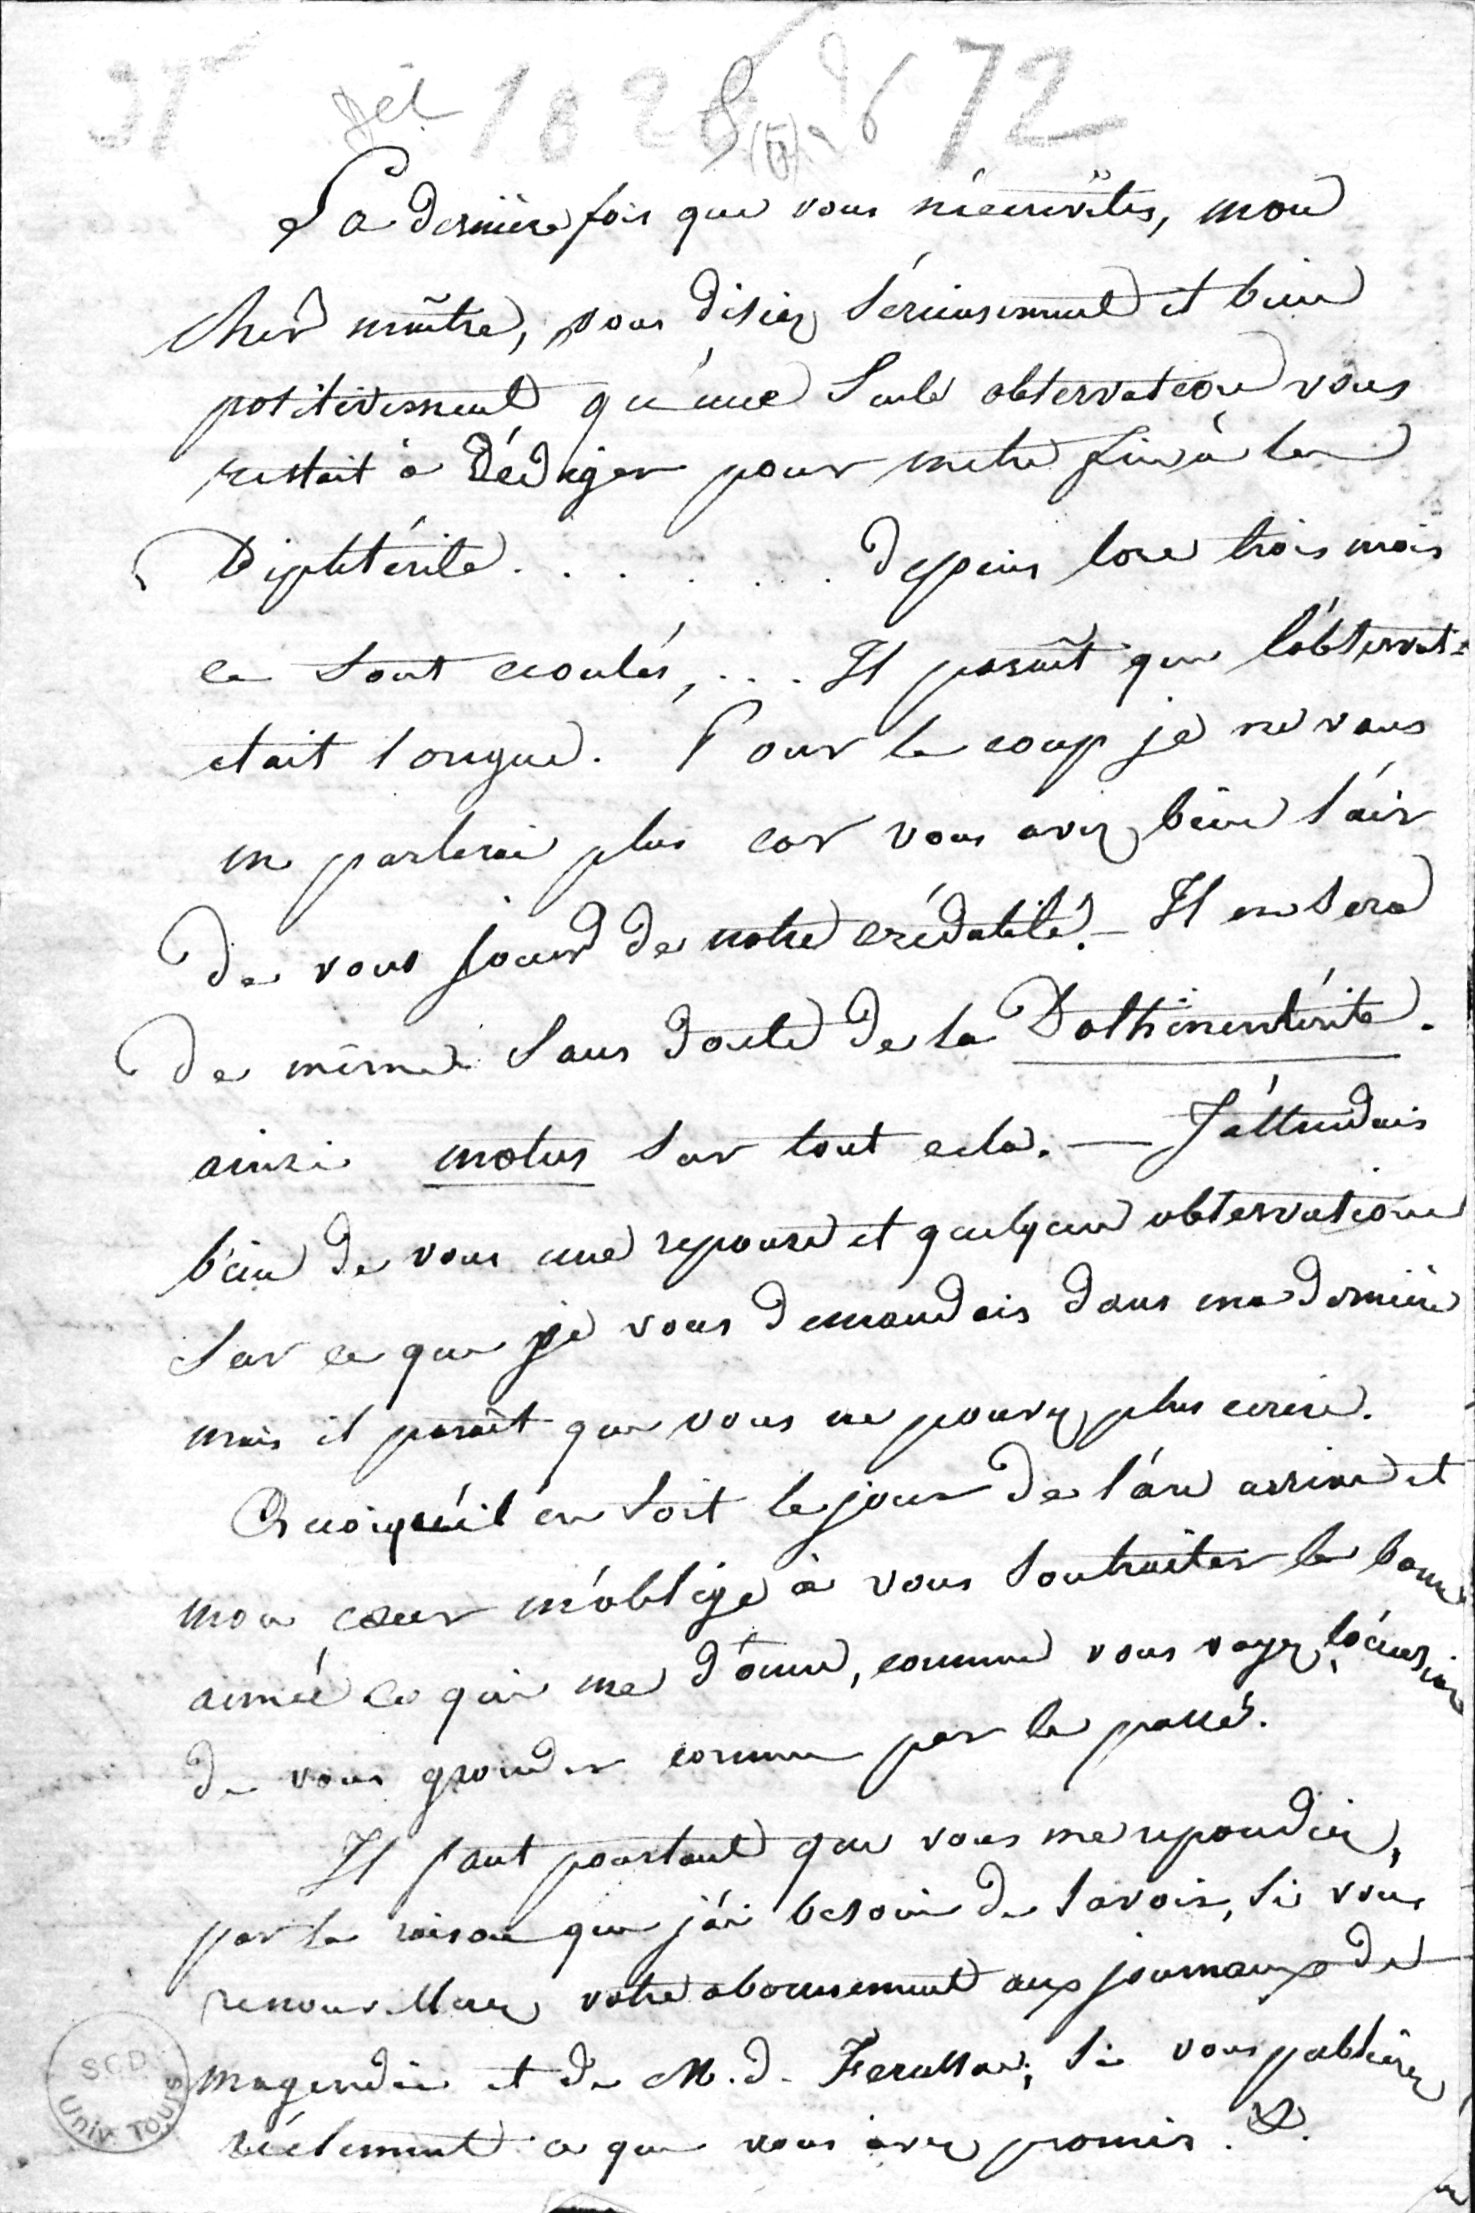 La dernière fois que vous m'écrivîtes, mon
cher maître, vous disiez sérieusement et bien
positivement qu'une seule observation vous
restait à rédiger pour metre fin à la
Diphtérite. . . . . . . depuis lore trois mois
ce sont ecoulés, . . . Il parait que l'observat=
etait longue. Pour le coup je ne vous
en parlerai plus car vous avez bien l'air
de vous jouer de notre crédulité. - Il en sera
de même sans doute de la Dothinentérite.
ainsi motus sur tout cela. — J'attendais
bien de vous une reponse et quelque observation
sur ce que je vous demandais dans ma dernière
mais il parait que vous ne pouvez plus ecrire.
Quoiqu'il en soit le jour de l'an arrive et
mon cœur m'oblige à vous souhaiter la bonne
année ce qui me donne, comme vous voyez, l'occasion
de vous gronder comme par le passé.
Il faut pourtant que vous me repondiez,
par la raison que j'ai besoin de savoir, si vous
renouvellerez votre abonnement aux journaux de
magendie et de M. d. Ferussac; si vous publierez
réelement ce que vous avez promis. &.
S.C.D.
Univ. Tours